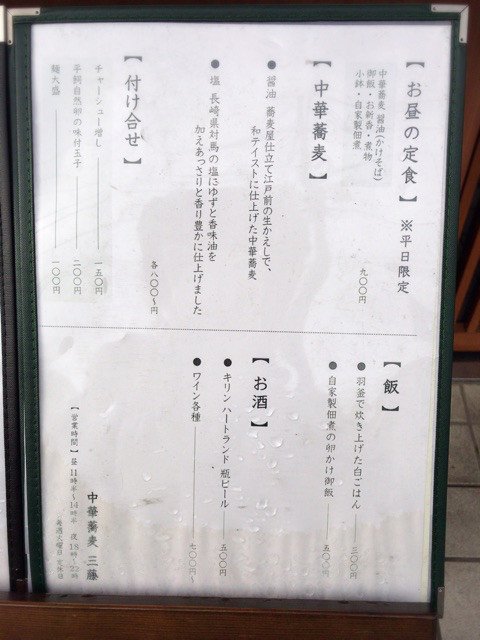 【お昼の定食】 ※平日限定
中華蕎麦 醤油(かけそば)
御飯・お新香・煮物
小鉢・自家製佃煮
九〇〇円
【中華蕎麦】
● 醤油 蕎麦屋仕立て江戸前の生かえしで、
和テイストに仕上げた中華蕎麦
● 塩 長崎県対馬の塩にゆずと香味油を
加えあっさりと香り豊かに仕上げました
各八〇〇〜円
【付け合せ】
チャーシュー増し 一五〇円
平飼自然卵の味付玉子 二〇〇円
麺大盛 一〇〇円
【飯】
● 羽釜で炊き上げた白ごはん 三〇〇円
● 自家製佃煮の卵かけ御飯 五〇〇円
【お酒】
● キリン ハートランド 瓶ビール 五〇〇円
● ワイン各種 七〇〇円〜
中華蕎麦 三藤
【営業時間】昼11時半〜14時半 夜18時〜22時
毎週火曜日 定休日